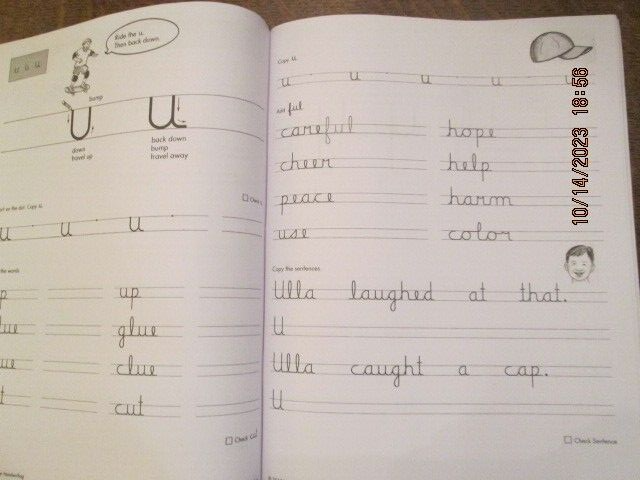 u u u
Ride the u.
Then back down.
bump
u u
down
travel up
back down
bump
travel away
Check u
Copy u.
u u u
the words
up
glue
clue
cut
Check cut
Copy u.
u u u u
Add ful
careful hope
cheer help
peace harm
use color
Copy the sentences.
Ulla laughed at that.
U
Ulla caught a cap.
U
Check Sentence
10/14/2023 18:56